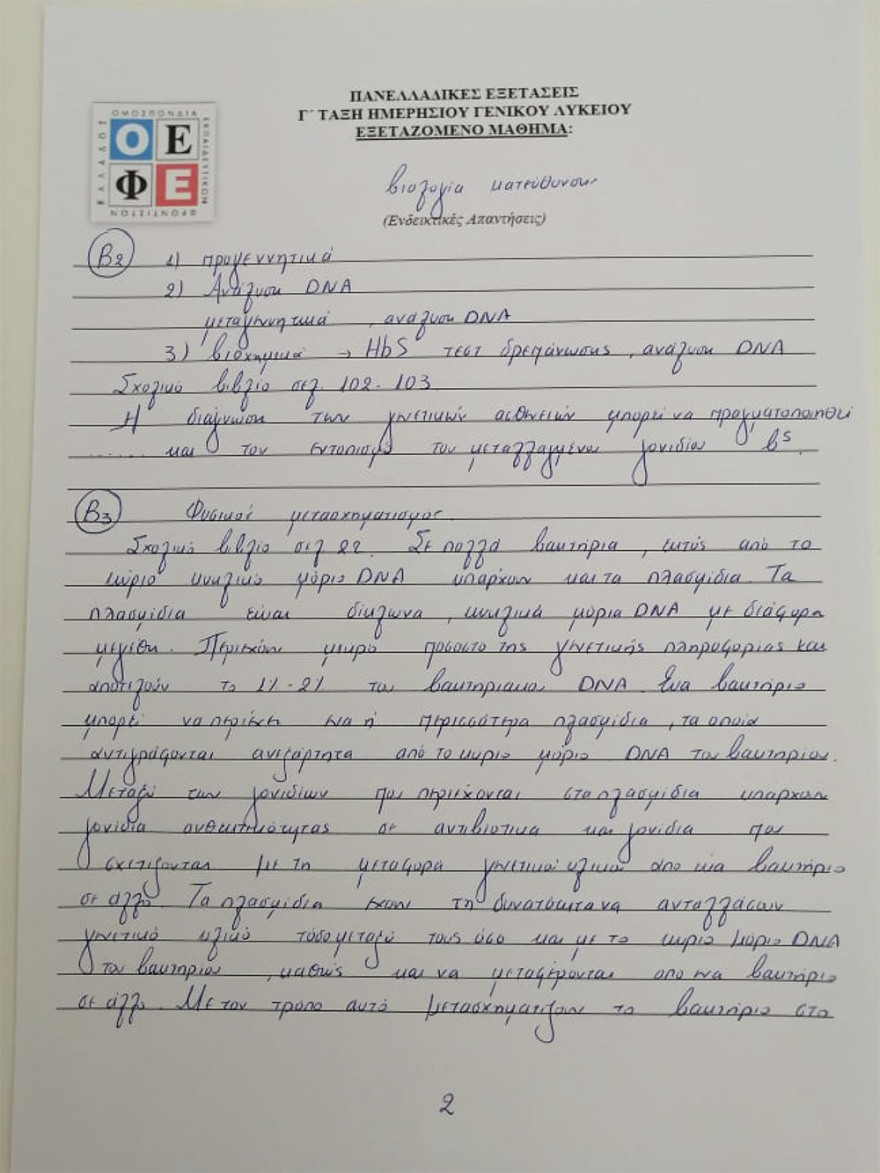 ΟΜΟΣΠΟΝΔΙΑ
ΕΚΠΑΙΔΕΥΤΙΚΩΝ
ΦΡΟΝΤΙΣΤΩΝ
ΕΛΛΑΔΟΣ
Ο Ε
Φ Ε
ΠΑΝΕΛΛΑΔΙΚΕΣ ΕΞΕΤΑΣΕΙΣ
Γ΄ ΤΑΞΗ ΗΜΕΡΗΣΙΟΥ ΓΕΝΙΚΟΥ ΛΥΚΕΙΟΥ
ΕΞΕΤΑΖΟΜΕΝΟ ΜΑΘΗΜΑ:
βιολογία κατεύθυνσης
(Ενδεικτικές Απαντήσεις)
Β2 1) προγεννητικά
2) Ανάλυση DNA
μεταγεννητικά , ανάλυση DNA
3) βιοχημικά → HbS τεστ δρεπάνωσης, ανάλυση DNA
Σχολικό βιβλίο σελ. 102-103.
Η διάγνωση των γενετικών ασθενειών μπορεί να πραγματοποιηθεί
...... και τον εντοπισμό του μεταλλαγμένου γονιδίου βˢ.
Β3 Φυσικός μετασχηματισμός.
Σχολικό βιβλίο σελ 22. Σε πολλά βακτήρια, εκτός από το
κύριο κυκλικό μόριο DNA υπάρχουν και τα πλασμίδια. Τα
πλασμίδια είναι δίκλωνα, κυκλικά μόρια DNA με διάφορα
μεγέθη. Περιέχουν μικρό ποσοστό της γενετικής πληροφορίας και
αποτελούν το 1%-2% του βακτηριακού DNA. Ένα βακτήριο
μπορεί να περιέχει ένα ή περισσότερα πλασμίδια, τα οποία
αντιγράφονται ανεξάρτητα από το κύριο μόριο DNA του βακτηρίου.
Μεταξύ των γονιδίων που περιέχονται στα πλασμίδια υπάρχουν
γονίδια ανθεκτικότητας σε αντιβιοτικά και γονίδια που
σχετίζονται με τη μεταφορά γενετικού υλικού από ένα βακτήριο
σε άλλο. Τα πλασμίδια έχουν τη δυνατότητα να ανταλλάσουν
γενετικό υλικό τόσο μεταξύ τους όσο και με το κύριο μόριο DNA
του βακτηρίου, καθώς και να μεταφέρονται από ένα βακτήριο
σε άλλο. Με τον τρόπο αυτό μετασχηματίζουν το βακτήριο στο
2